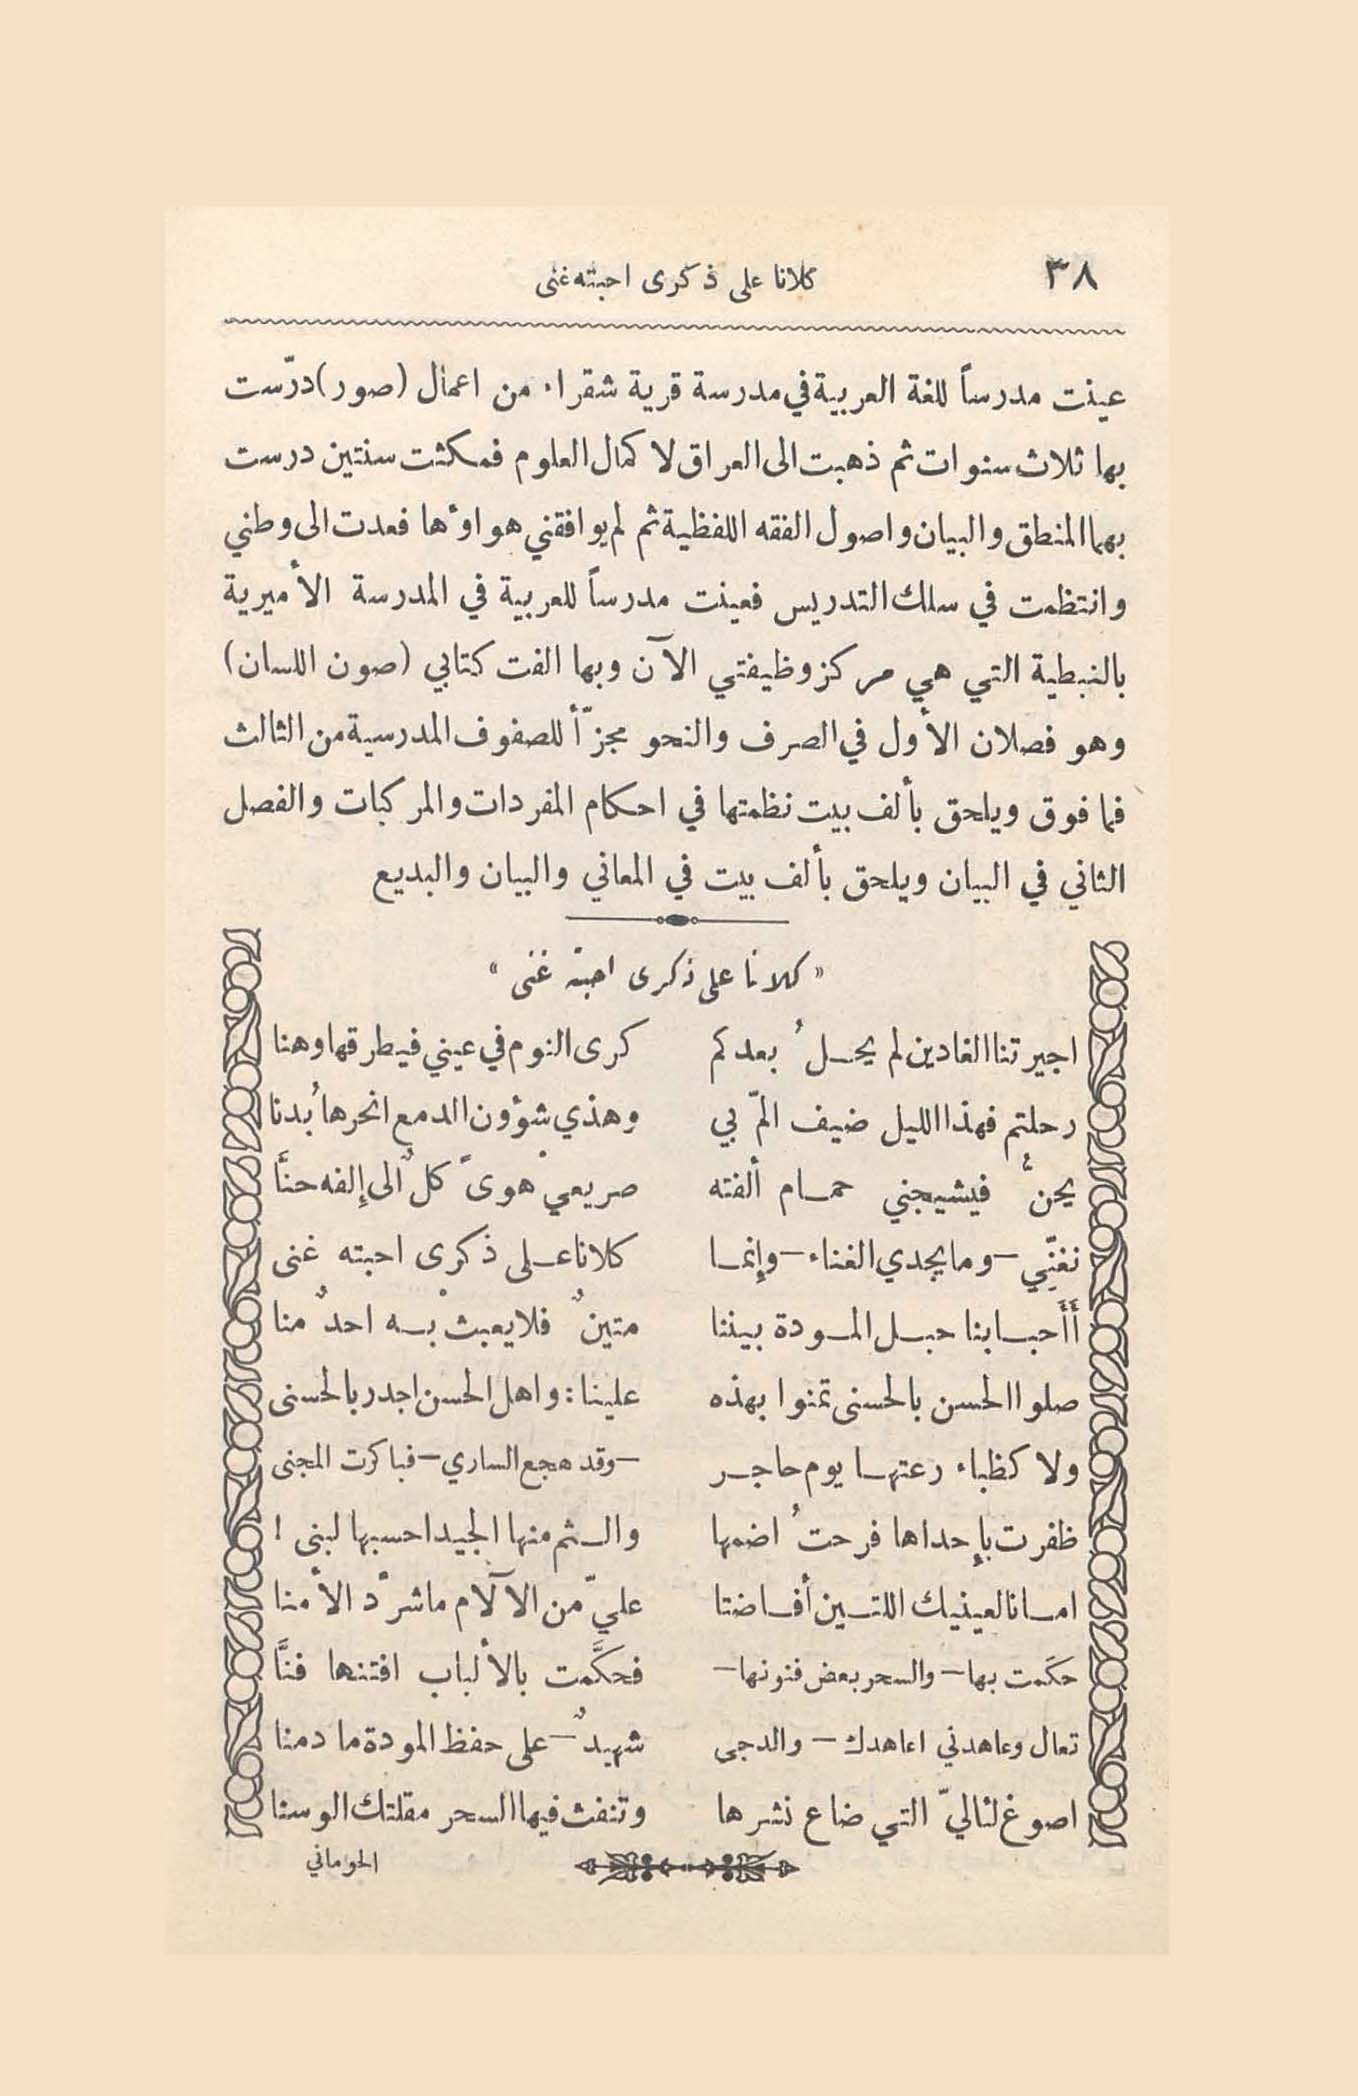 ٣٨
كلانا على ذكرى احبته غنى
عينت مدرساً للغة العربية في مدرسة قرية شقراء من اعمال (صور) درّست
بها ثلاث سنوات ثم ذهبت الى العراق لا كمال العلوم فمكثت سنتين درست
بهما المنطق والبيان واصول الفقه اللفظية ثم لم يوافقني هواؤها فعدت الى وطني
وانتظمت في سلك التدريس فعينت مدرساً للعربية في المدرسة الأميرية
بالنبطية التي هي مركز وظيفتي الآن وبها الفت كتابي (صون اللسان)
وهو فصلان الأول في الصرف والنحو مجزّأ للصفوف المدرسية من الثالث
فما فوق ويلحق بألف بيت نظمتها في احكام المفردات والمركبات والفصل
الثاني في البيان ويلحق بألف بيت في المعاني والبيان والبديع
« كلانا على ذكرى احبته غنى »
اجيرتنا الغادين لم يحلُ بعدكم كرى النوم في عيني فيطرقها وهنا
رحلتم فهذا الليل ضيف المّ بي وهذي شؤون الدمع انحرها بُدنا
يحنّ فيشيجني حمام ألفته صريعيْ هوىً كلٌ الى إلفه حنَّا
نغنّي – وما يجدي الغناء – وإنما كلانا على ذكرى احبته غنى
أَأَحبابنا حبل المودة بيننا متينٌ فلا يعبثْ به احدٌ منا
صلوا الحسن بالحسنى تمنوا بهذه علينا: واهل الحسن اجدر بالحسنى
ولا كظباء رعتها يوم حاجر – وقد هجع الساري – فباكرت المجنى
ظفرت بإحداها فرحتُ اضمها والثم منها الجيد احسبها لبنى !
امانا لعينيك اللتين أفاضتا عليّ من الآلام ما شرّد الأمنا
حكَمت بها – والسحر بعض فنونها – فحكَّمت بالألباب افتنها فنَّا
تعال وعاهدني اعاهدك – والدجى شهيدٌ – على حفظ المودة ما دمنا
اصوغ لئاليّ التي ضاع نشرها وتنفث فيها السحر مقلتك الوسنا
الحوماني